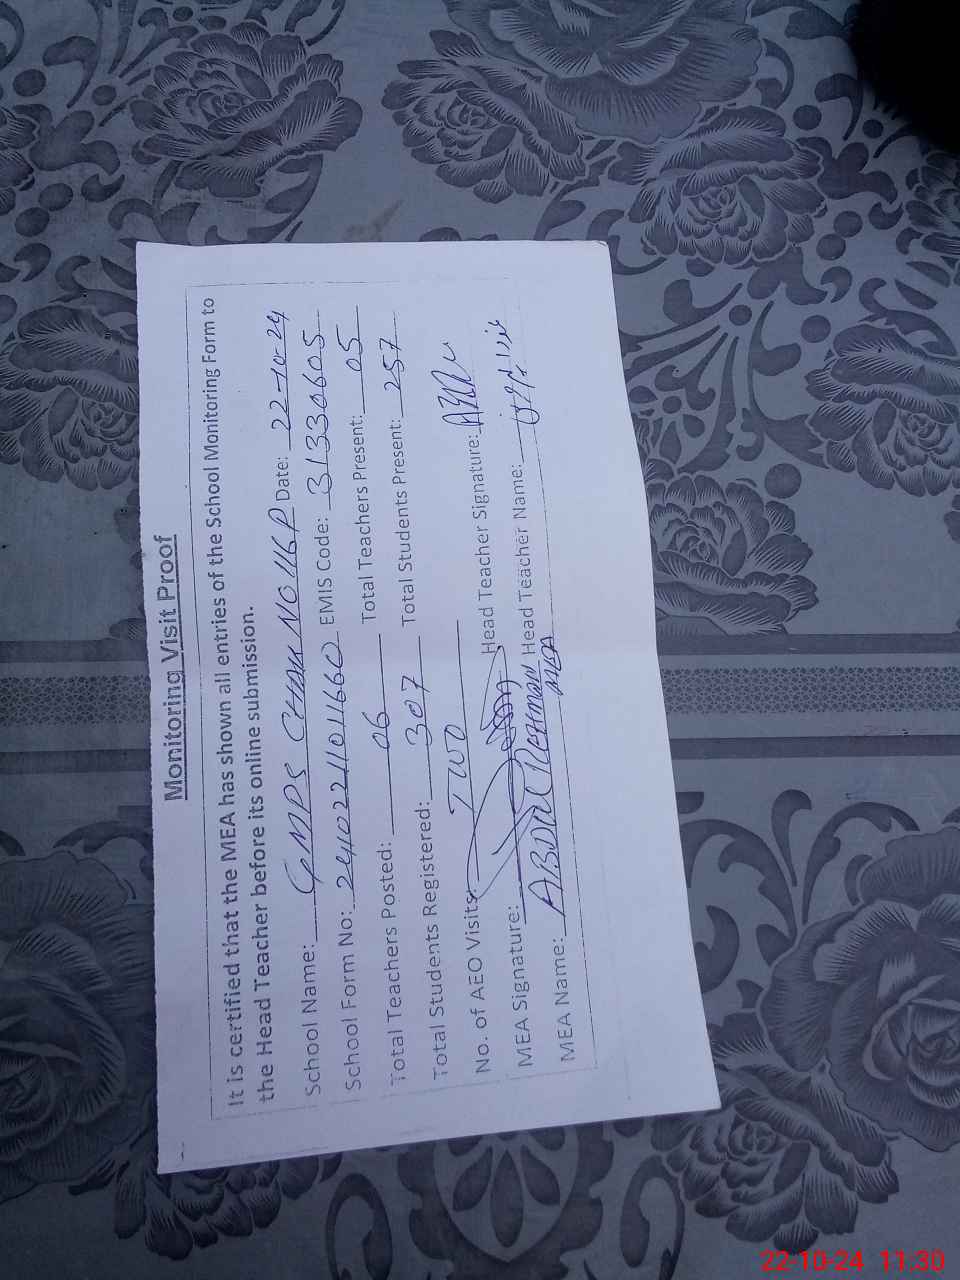 Monitoring Visit Proof
It is certified that the MEA has shown all entries of the School Monitoring Form to
the Head Teacher before its online submission.
School Name: GMPS CHAK NO 116 P Date: 22-10-24
School Form No: 24102211011660 EMIS Code: 31330605
Total Teachers Posted: 06 Total Teachers Present: 05
Total Students Registered: 307 Total Students Present: 257
No. of AEO Visits: TWO
MEA Signature: Head Teacher Signature:
MEA Name: ABDUL REHMAN Head Teacher Name:
MEA
22-10-24 11:30